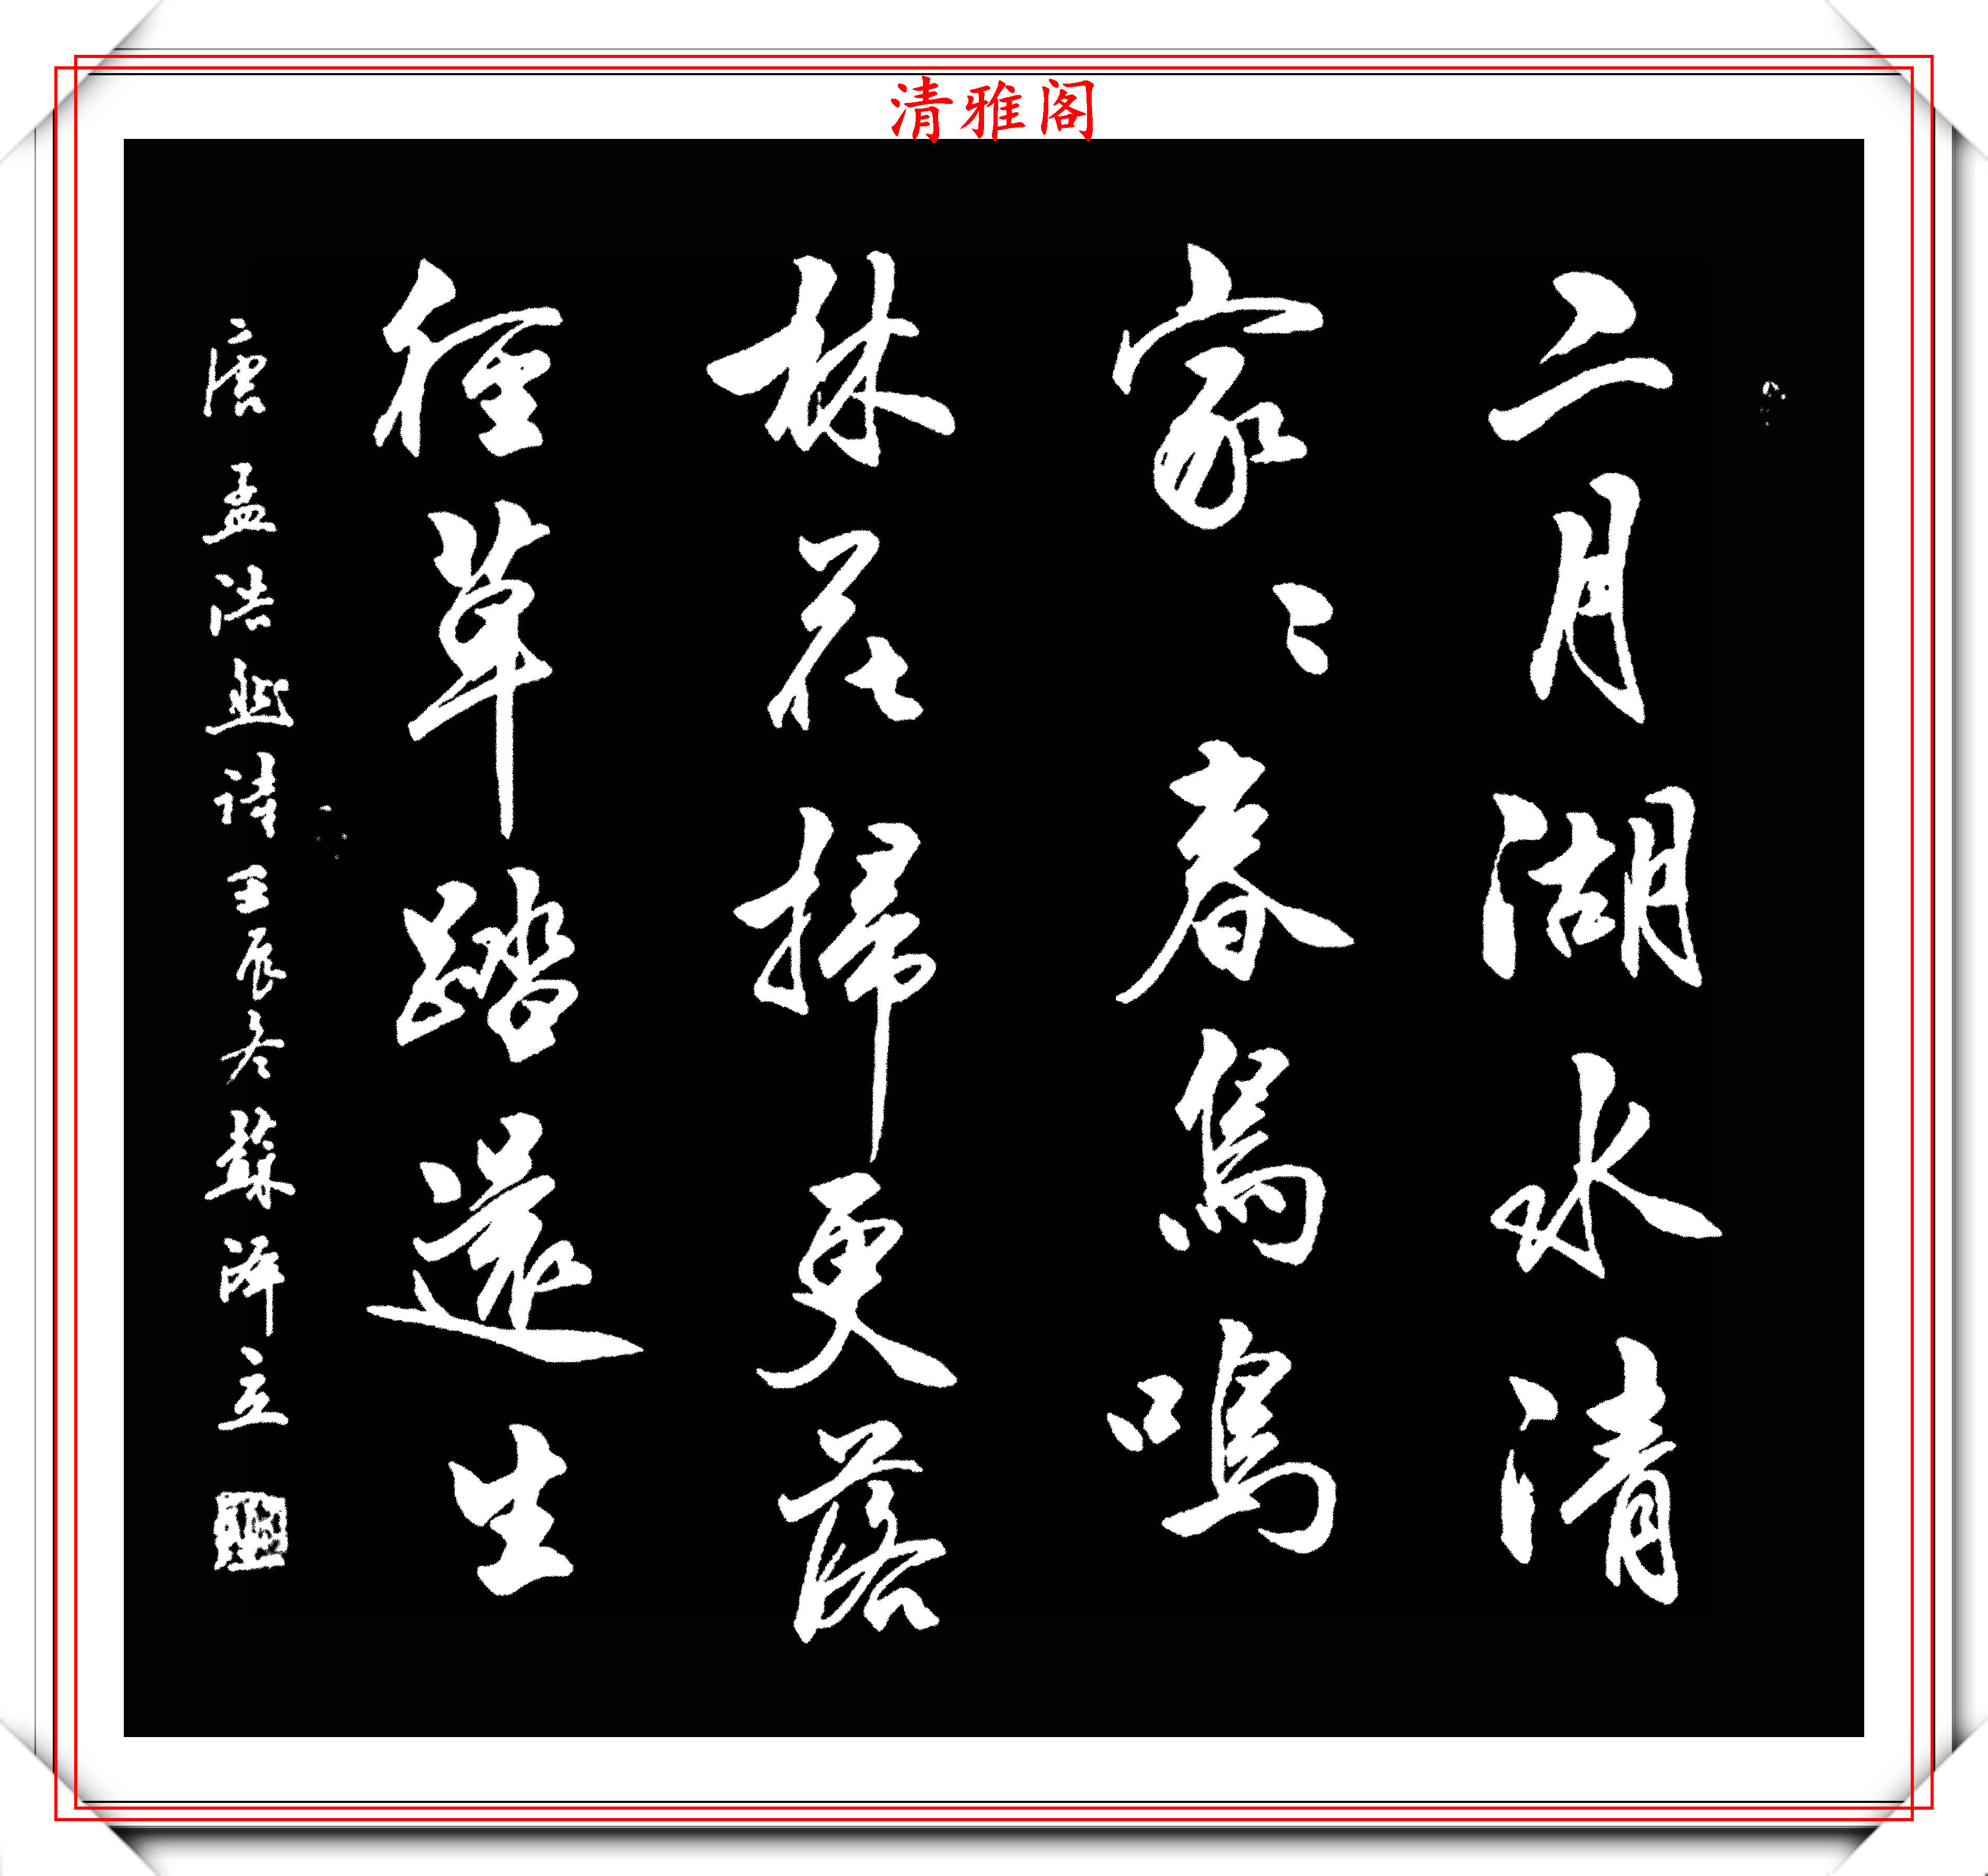 清雅阁
二月湖水清
家〻春鳥鳴
林花掃更落
徑草踏還生
唐孟浩然詩壬辰冬蘇澤立